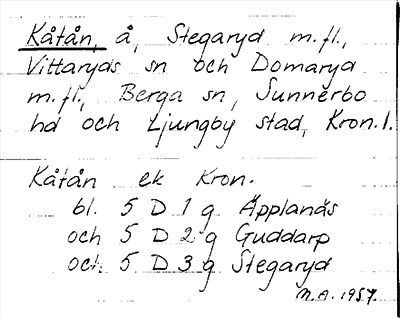 Kåtån, å, Stegaryd m.fl.,
Vittaryds sn och Domaryd
m.fl., Berga sn, Sunnerbo
hd och Ljungby stad, Kron.l.
Kåtån ek Kron.
bl. 5 D 1 g Äpplanäs
och 5 D 2 g Guddarp
och 5 D 3 g Stegaryd
M.A. 1957.